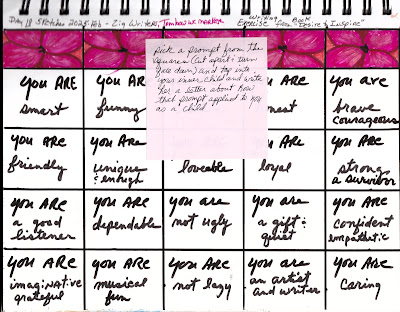 Day 18 Sketches 2025 Feb - Zig Writers, Tombow w. marker
Writing Book
Exercise from "Desire & Inspire"
pick a prompt from the
squares (cut apart & turn
face down) and tap into
your inner child and write
her a letter about how
that prompt applied to you
as a child.
you ARE smart
you ARE funny
honest
you are brave courageous
you ARE friendly
you ARE unique & enough
loveable
you are loyal
you ARE strong a survivor
you ARE a good listener
you ARE dependable
you are not ugly
you are a gift & quiet
you ARE confident empathetic
you ARE imaginative grateful
you ARE musical fun
you ARE not lazy
you are an artist and writer
you ARE caring